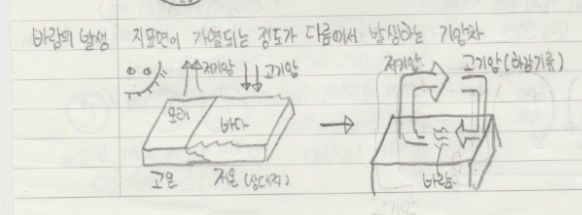 바람의 발생 지표면이 가열되는 정도가 다름에서 발생하는 기압차
저기압 고기압
모래 바다
고온 저온 (상대적)
저기압 고기압 (하강기류)
바람